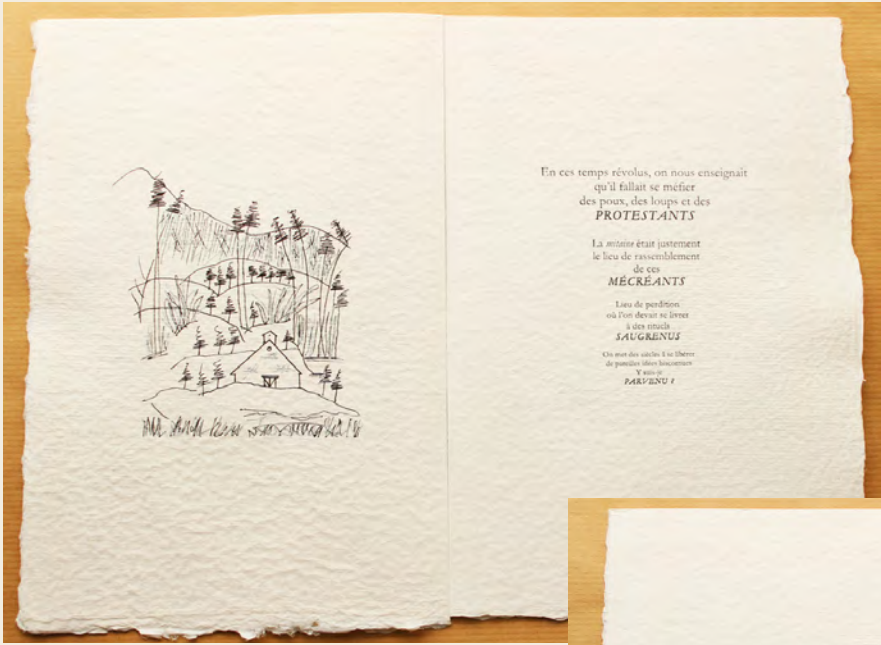 En ces temps révolus, on nous enseignait
qu'il fallait se méfier
des poux, des loups et des
PROTESTANTS
La mitaine était justement
le lieu de rassemblement
de ces
MÉCRÉANTS
Lieu de perdition
où l'on devait se livrer
à des rituels
SAUGRENUS
On met des siècles à se libérer
de pareilles idées
Y suis-je
PARVENU ?